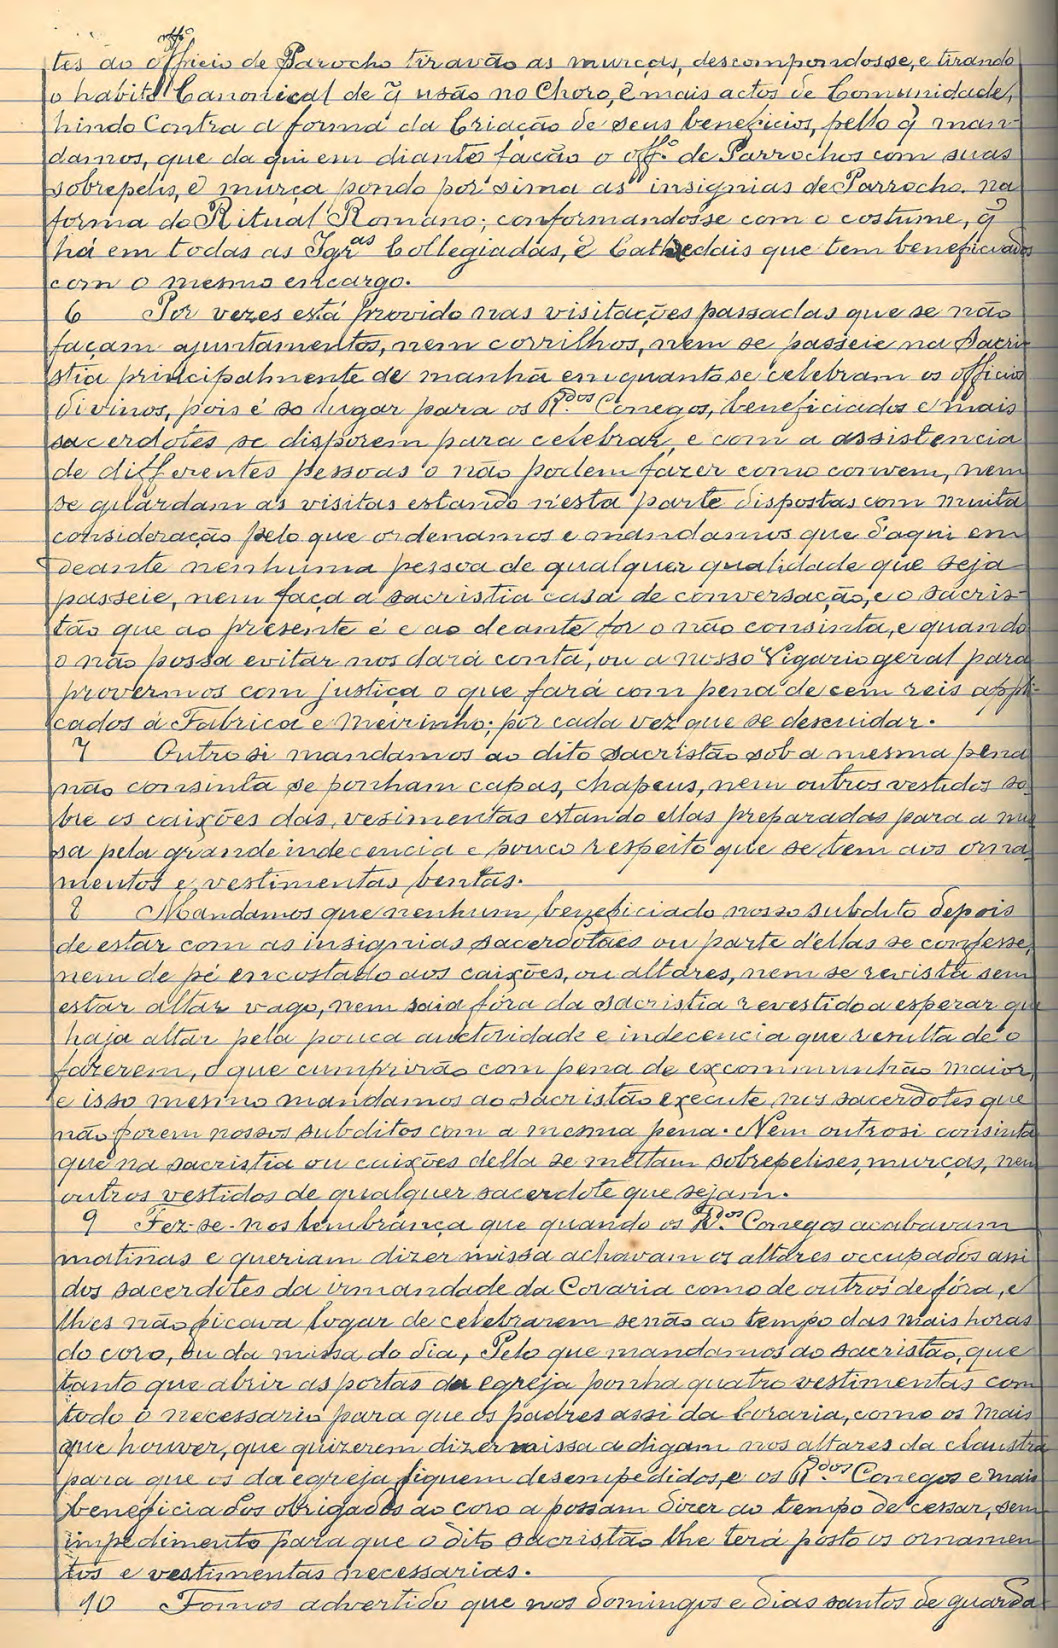 tes do officio de Parocho tiravão as murças, descompondosse, e tirando
o habito Canonical de q̃ usão no Choro, e mais actos de Comunidade,
hindo contra a forma da Criação de seus beneficios, pello q̃ man-
damos, que da qui em diante facão o offº de Parrochos com suas
sobrepelis, e murça pondo por sima as insignias de Parrocho. na
forma do Ritual Romano; conformandosse com o costume, q̃
há em todas as Igras Collegiadas, e Cathedais que tem beneficiados
com o mesmo encargo.
6 Por vezes está provido nas visitações passadas que se não
façam ajuntamentos, nem corrilhos, nem se passeie na Sacri-
stia principalmente de manhã emquanto se celebram os officios
divinos, pois é so lugar para os R.dos Conegos, beneficiados e mais
sacerdotes se disporem para celebrar, e com a assistencia
de differentes pessoas o não podem fazer como convem, nem
se guardam as visitas estando n'esta parte dispostas com muita
consideração pelo que ordenamos e mandamos que d'aqui em
deante nenhuma pessoa de qualquer qualidade que seja
passeie, nem faça a sacristia casa de conversação, e o sacris-
tão que ao presente é e ao deante for o não consinta, e quando
o não possa evitar nos dará conta, ou a nosso Vigario geral para
provermos com justiça o que fará com pena de cem reis appli-
cados á Fabrica e Meirinho; por cada vez que se descuidar.
7 Outro si mandamos ao dito sacristão sob a mesma pena
não consinta se ponham capas, chapeus, nem outros vestidos so-
bre os caixões das vesimentas estando ellas preparadas para a mis-
sa pela grande indecencia e pouco respeito que se tem aos orna-
mentos e vestimentas bentas.
8 Mandamos que nenhum beneficiado nosso subdito depois
de estar com as insignias sacerdotaes ou parte d'ellas se confesse,
nem de pé encostado aos caixões, ou altares, nem se revista sem
estar altar vago, nem saia fóra da sacristia revestido a esperar que
haja altar pela pouca auctoridade e indecencia que resulta de o
fazerem, o que cumprirão com pena de excommunhão maior,
e isso mesmo mandamos ao sacristão execute nos sacerdotes que
não forem nossos subditos com a mesma pena. Nem outrosi consinta
que na sacristia ou caixões della se mettam sobrepelises, murças, nem
outros vestidos de qualquer sacerdote que sejam.
9 Fez-se-nos lembrança que quando os R.dos Conegos acabavam
matinas e queriam dizer missa achavam os altares occupados assi
dos sacerdotes da irmandade da Coraria como de outros de fóra, e
lhes não ficava logar de celebrarem senão ao tempo das mais horas
do coro, ou da missa do dia, Pelo que mandamos ao sacristão, que
tanto que abrir as portas da egreja ponha quatro vestimentas com
todo o necessario para que os padres assi da Coraria, como os mais
que houver, que quizerem dizer missa a digam nos altares da claustra
para que os da egreja fiquem desempedidos, e os R.dos Conegos e mais
beneficiados obrigados ao coro a possam dizer ao tempo de cessar, sem
impedimento para que o dito sacristão lhe terá posto os ornamen
tos e vestimentas necessarias.
10 Fomos advertido que nos domingos e dias santos de guarda